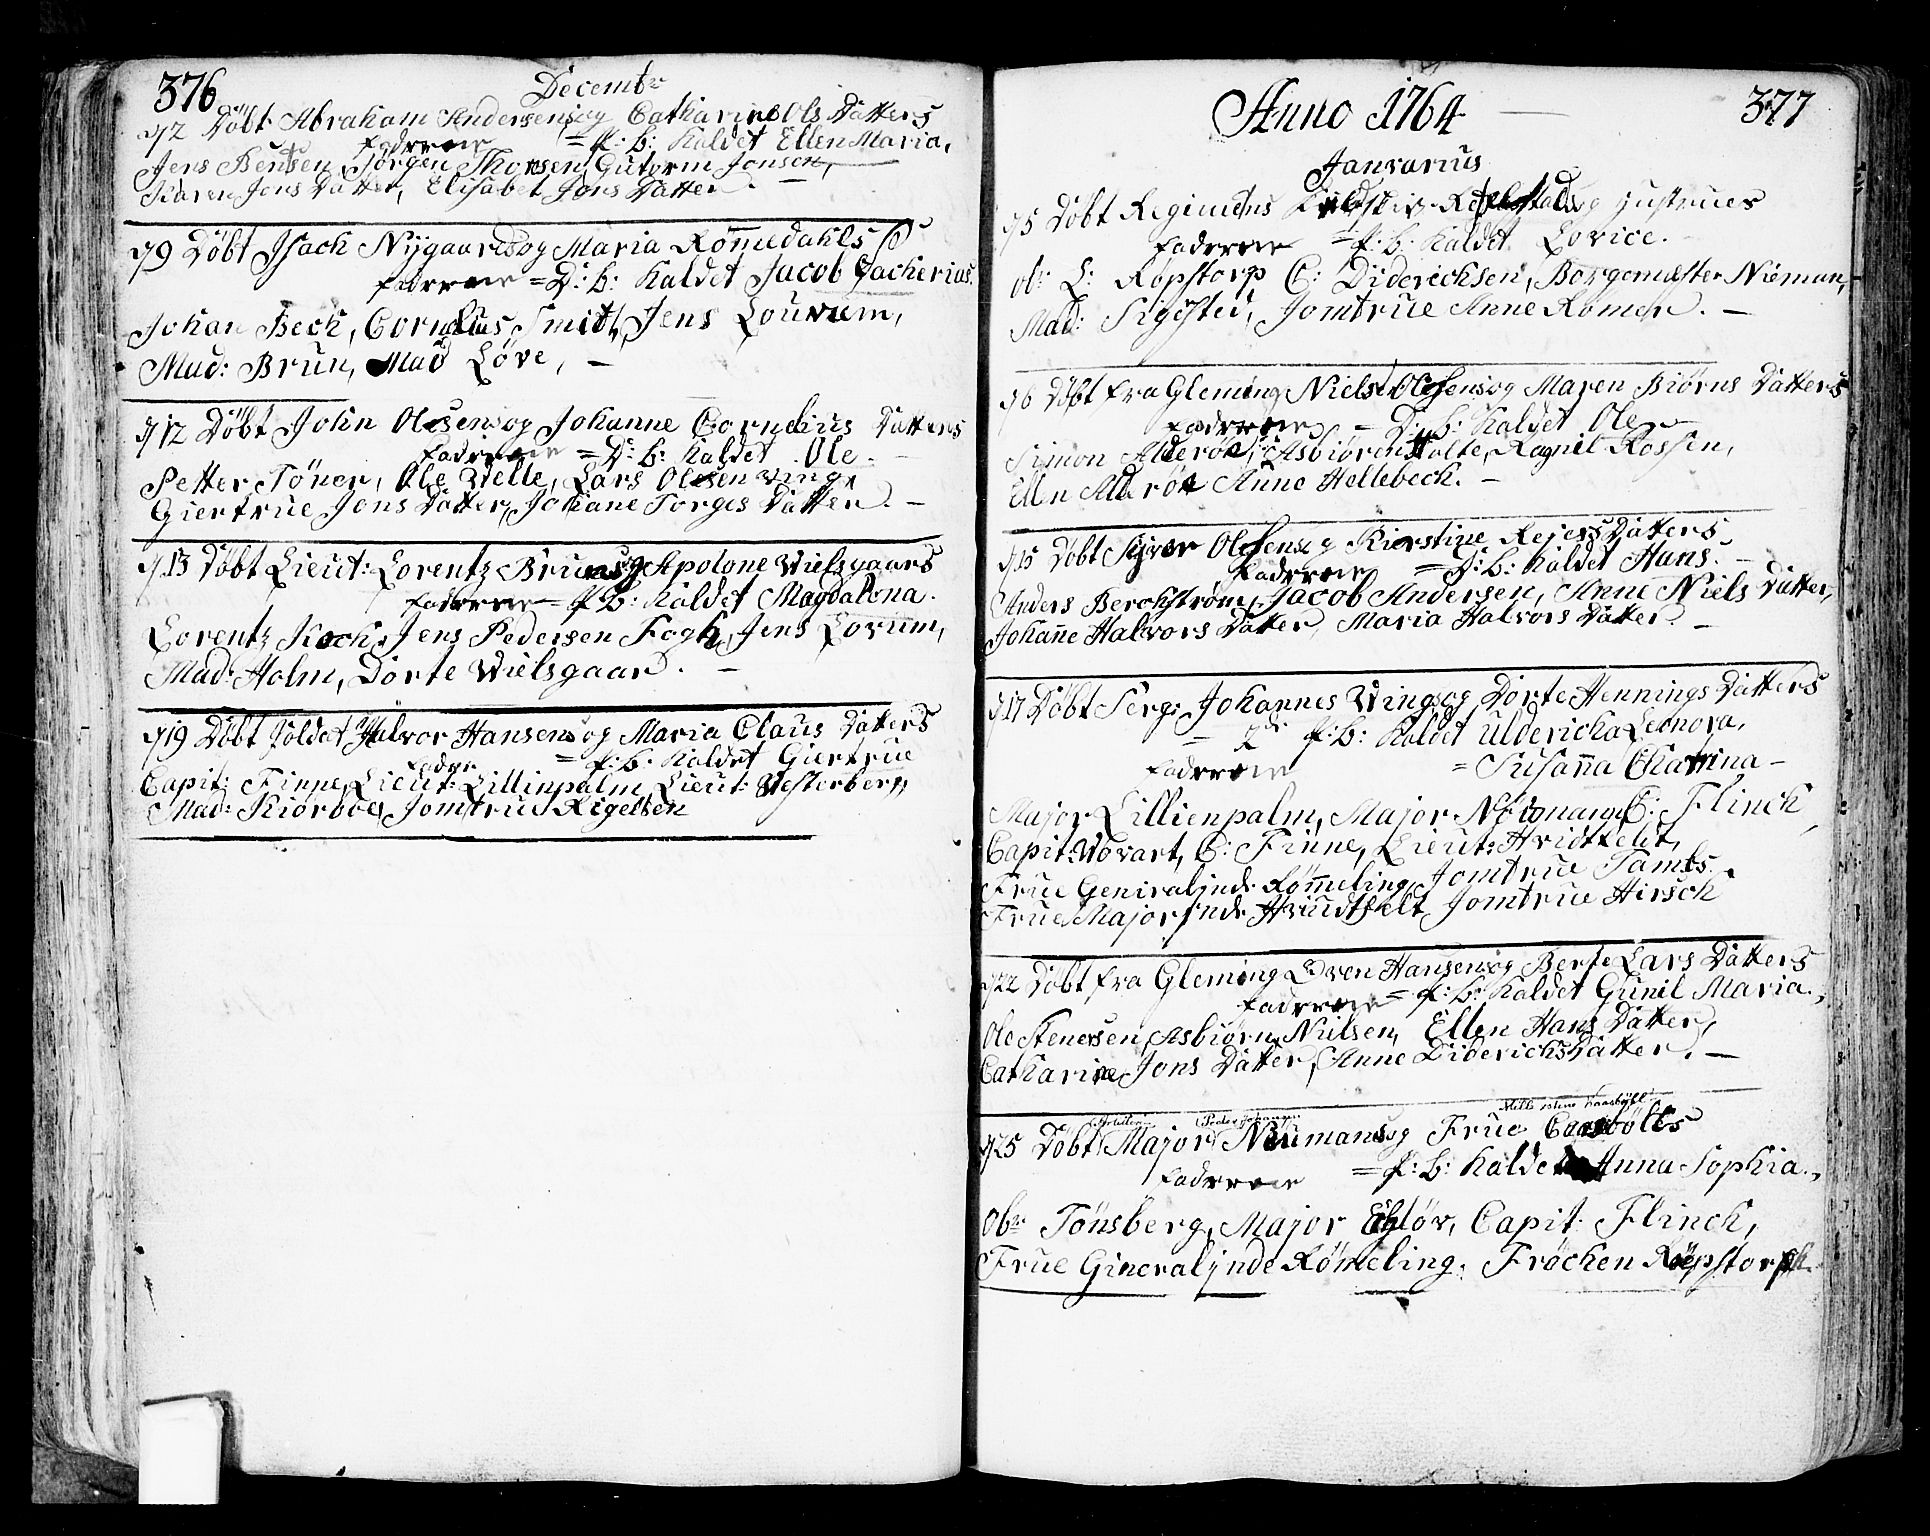 376
Decembr
d/2 Døbt Abraham Andersens og Catharine Ols Datters
fadrene = P: b: kaldet Ellen Maria,
Jens Bentsen, Jörgen Thorsen, Gutorm Jonsen,
Karen Jens Datter, Elisabet Jons Datter. —
d/9 Døbt Isach Nygaards og Maria Römedahls
fadrene = D: b: kaldet Jacob Zacherias.
Johan Bech, Cornelius Smith, Jens Louvum,
Mad: Brun, Mad Löve, —
d/12 Døbt John Olesens og Johanne Cornelius Datters
fadrene = D: b: kaldet Ole. —
Petter Töner, Ole Welle, Lars Olesen Ving,
Giertrue Jons Datter, Johane Torges Datter. —
d/13 Døbt Lieut: Lorentz Bruns og Apolone Wielsgaars
fadrene = P: b: kaldet Magdalena.
Lorentz Koch, Jens Pedersen Fogh, Jens Lovum,
Mad: Holm, Dorte Wielsgaar. —
d/19 Døbt Soldat Halvor Hansens og Maria Claus Datters
fadrene = P: b: kaldet Giertrue
Capit: Finne, Lieut: Lillinpalm, Lieut: Vesterberg,
Mad: Kiörboe, Jomtrue Rigelsen
377
Anno 1764 —
Janvarius
d/5 Døbt Regimens og Justrues
fadrene = P: b: kaldet Lovice. —
obr: L: Röpstorp C: Diderichsen, Borgemester Nieman,
Mad: Sigested, Jomtrue Anne Römer. —
d/6 Døbt fra Gleming Niels Olesens og Maren Biörns Datters
fadrene = D: b: kaldet Ole —
Simon Alderön, Asbiören Holte, Ragnil Rossen,
Ellen Alderön Anne Hellebech. —
d/15 Døbt Syver Olesens og Kierstine Rejers Datters
fadrene = P: b: kaldet Hans. —
Anders Berchström, Jacob Andersen, Anne Niels Datter,
Johanne Halvors Datter, Maria Halvors Datter. —
d/17 Døbt Serg: Johannes Vings og Dorte Hennings Datters
= 2de P: b: kaldet Uldericha Leonora,
fadrene = Susanna Chatrina —
Major Lillienpalm, Major Noimann, C: Flinch,
Capit: Wovart, C: Finne, Lieut: Hvidtfelt,
Frue Generalinde Römeling, Jomtrue Tambs.
Frue Majorinde Hviidtfelt, Jomtrue Hirsch
d/22 Døbt fra Gleming Even Hansens og Berte Lars Datters
fadrene = P: b: kaldet Gunil Maria.,
Ole Stenersen, Asbiörn Nielsen, Ellen Hans Datter,
Catharine Jons Datter, Anne Diderichs Datter. —
Peder Johann
d/25 Døbt Major Neumans og Frue Caasbölts
fadrene = P: b: kaldet Anna Sophia.,
Obr Tönsberg, Major Eglöv, Capit: Flinch,
Frue Gineralinde Römeling. Fröchen Röpstorph.